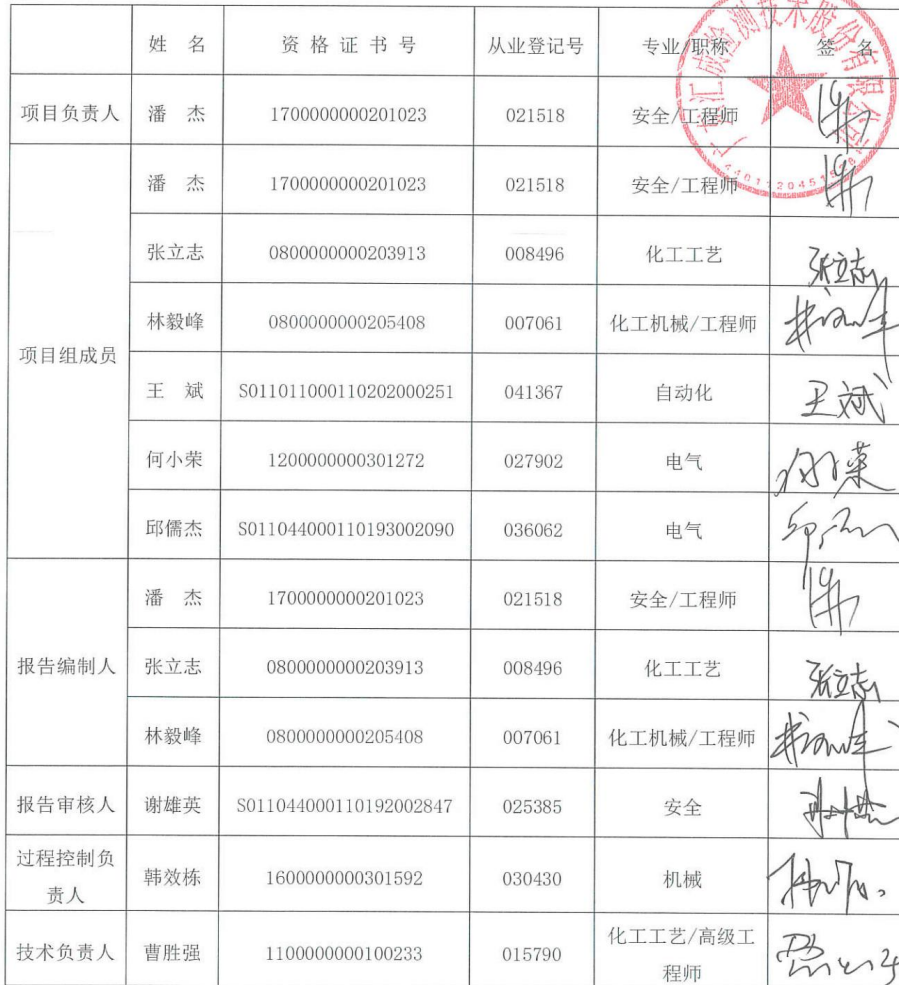 姓 名 资 格 证 书 号 从业登记号 专业/职称 签 名
项目负责人 潘 杰 1700000000201023 021518 安全/工程师
项目组成员
潘 杰 1700000000201023 021518 安全/工程师
张立志 0800000000203913 008496 化工工艺 张立志
林毅峰 0800000000205408 007061 化工机械/工程师
王 斌 S011011000110202000251 041367 自动化 王斌
何小荣 1200000000301272 027902 电气 何小荣
邱儒杰 S011044000110193002090 036062 电气
报告编制人
潘 杰 1700000000201023 021518 安全/工程师
张立志 0800000000203913 008496 化工工艺 张立志
林毅峰 0800000000205408 007061 化工机械/工程师
报告审核人 谢雄英 S011044000110192002847 025385 安全
过程控制负
责人
韩效栋 1600000000301592 030430 机械
技术负责人 曹胜强 1100000000100233 015790
化工工艺/高级工
程师